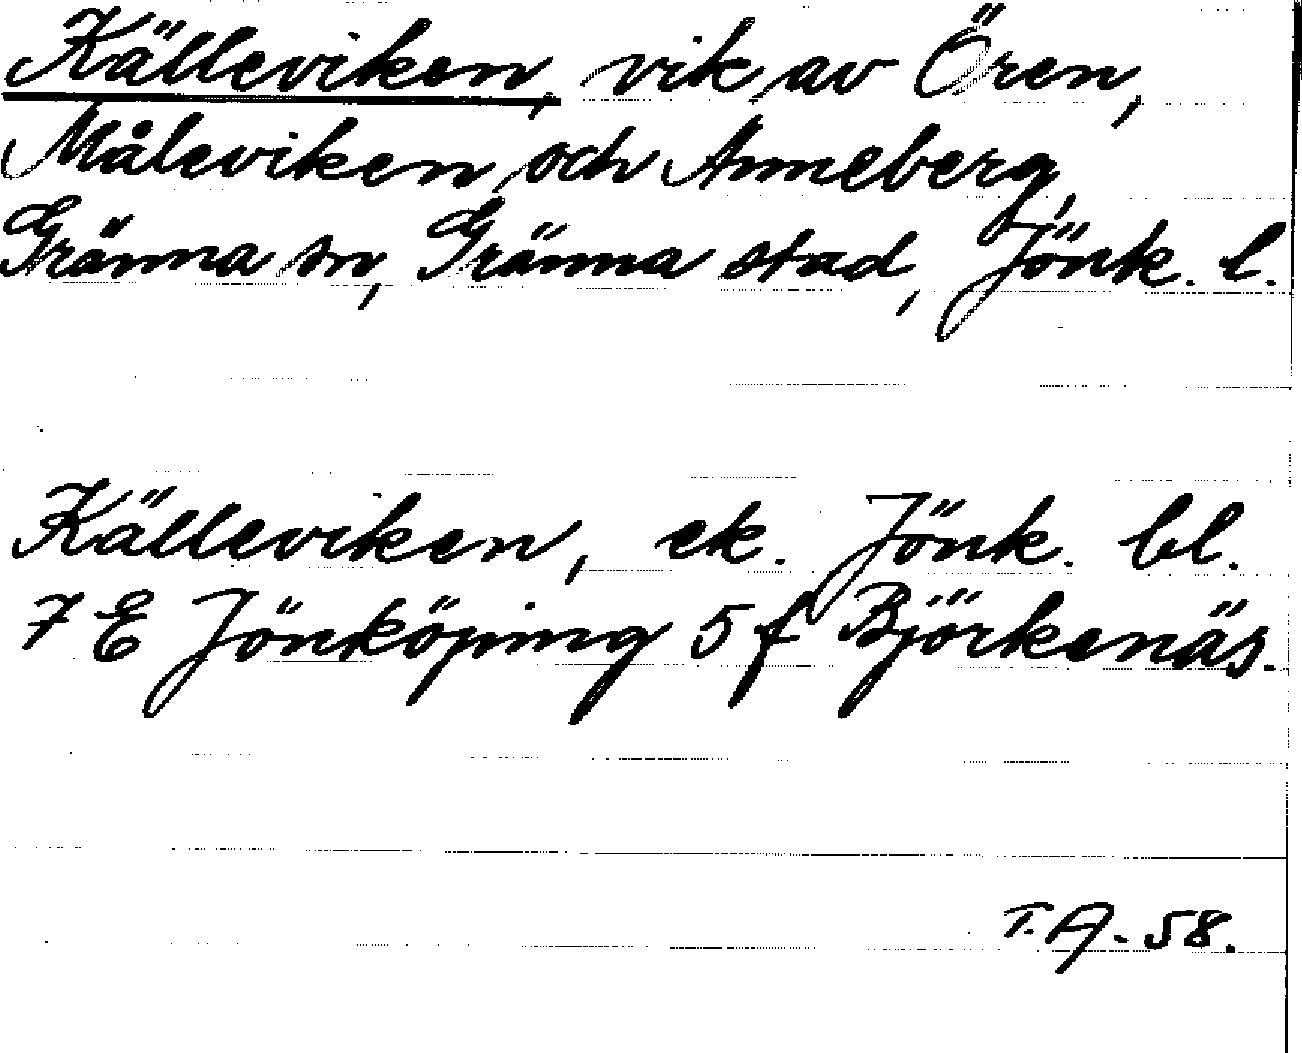 Källeviken, vik av Ören,
Måleviken och Anneberg,
Gränna sn, Gränna stad, Jönk. l.
Källeviken, ek. Jönk. bl.
7 E Jönköping 5 f Björkenäs.
T.A. 58.